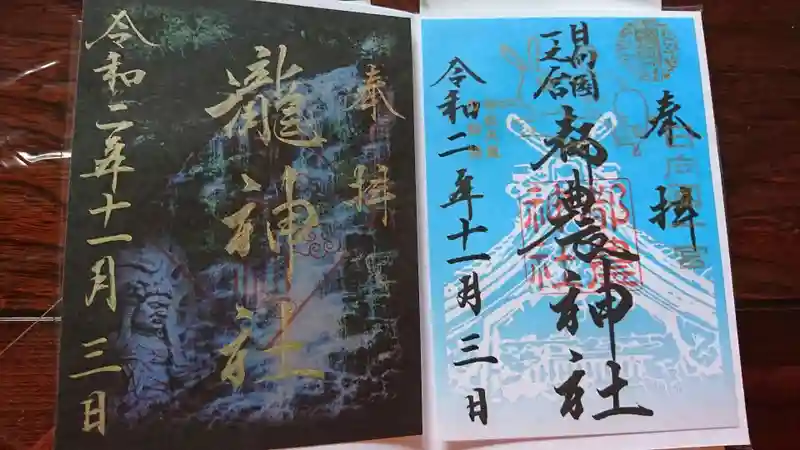 奉拝
瀧神社
令和二年十一月三日
奉拝
日向国
一之宮
都農神社
令和二年十一月三日
都農
神社